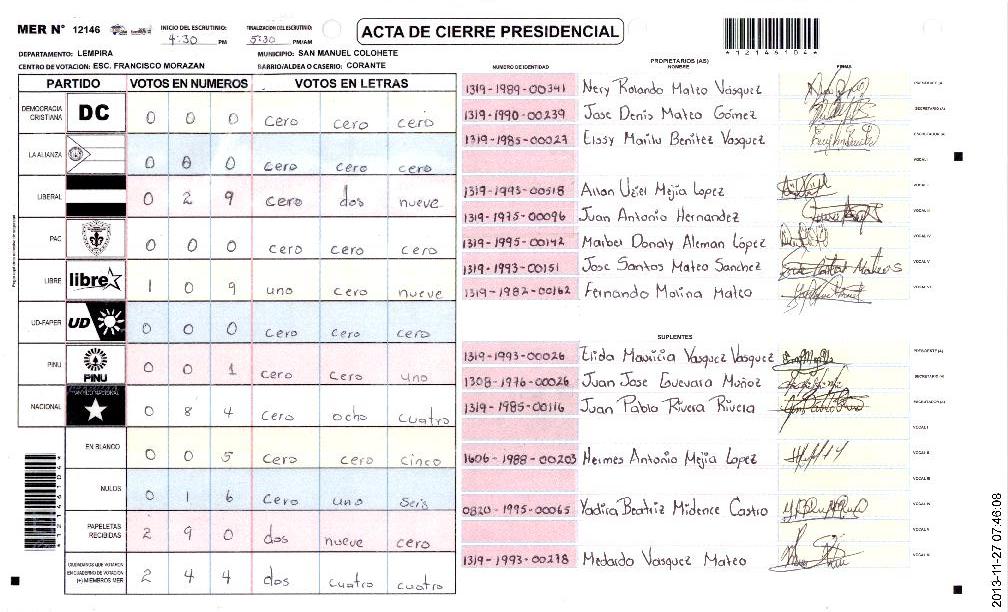 MER N° 12146
INICIO DEL ESCRUTINIO:
4:30 PM
FINALIZACION DEL ESCRUTINIO:
5:30 PM/AM
ACTA DE CIERRE PRESIDENCIAL
*12146104*
DEPARTAMENTO: LEMPIRA
MUNICIPIO: SAN MANUEL COLOHETE
CENTRO DE VOTACION: ESC. FRANCISCO MORAZAN
BARRIO/ALDEA O CASERIO: CORANTE
PARTIDO VOTOS EN NUMEROS VOTOS EN LETRAS
DEMOCRACIA CRISTIANA DC 0 0 0 cero cero cero
LA ALIANZA 0 0 0 cero cero cero
LIBERAL 0 2 9 cero dos nueve
PAC 0 0 0 cero cero cero
LIBRE libre 1 0 9 uno cero nueve
UD-FAPER UD 0 0 0 cero cero cero
PINU PINU 0 0 1 cero cero uno
NACIONAL 0 8 4 cero ocho cuatro
EN BLANCO 0 0 5 cero cero cinco
NULOS 0 1 6 cero uno seis
PAPELETAS RECIBIDAS 2 9 0 dos nueve cero
CIUDADANOS QUE VOTARON EN CUADERNO DE VOTACION (+) MIEMBROS MER 2 4 4 dos cuatro cuatro
*12146104*
NUMERO DE IDENTIDAD
PROPIETARIOS (AS)
NOMBRE
FIRMA
1319-1989-00341 Nery Rolando Mateo Vásquez PRESIDENTE (A)
1319-1990-00239 Jose Denis Mateo Gómez SECRETARIO (A)
1319-1985-00027 Eissy Marilu Benitez Vasquez ESCRUTADOR (A)
VOCAL I
1319-1993-00518 Allan Uziel Mejía Lopez VOCAL II
1319-1975-00096 Juan Antonio Hernandez VOCAL III
1319-1995-00142 Maribel Donaty Aleman López VOCAL IV
1319-1993-00151 Jose Santos Mateo Sanchez VOCAL V
1319-1982-00162 Fernando Molina Mateo VOCAL VI
SUPLENTES
1319-1993-00026 Elida Mauricia Vasquez Vasquez PRESIDENTE (A)
1308-1976-00026 Juan Jose Guevara Muñoz SECRETARIO (A)
1319-1985-00116 Juan Pablo Rivera Rivera ESCRUTADOR (A)
VOCAL I
1606-1988-00203 Hermes Antonio Mejía Lopez VOCAL II
VOCAL III
0820-1995-00065 Yadira Beatriz Midence Castro VOCAL IV
VOCAL V
1319-1993-00278 Medardo Vasquez Mateo VOCAL VI
2013-11-27 07:46:08